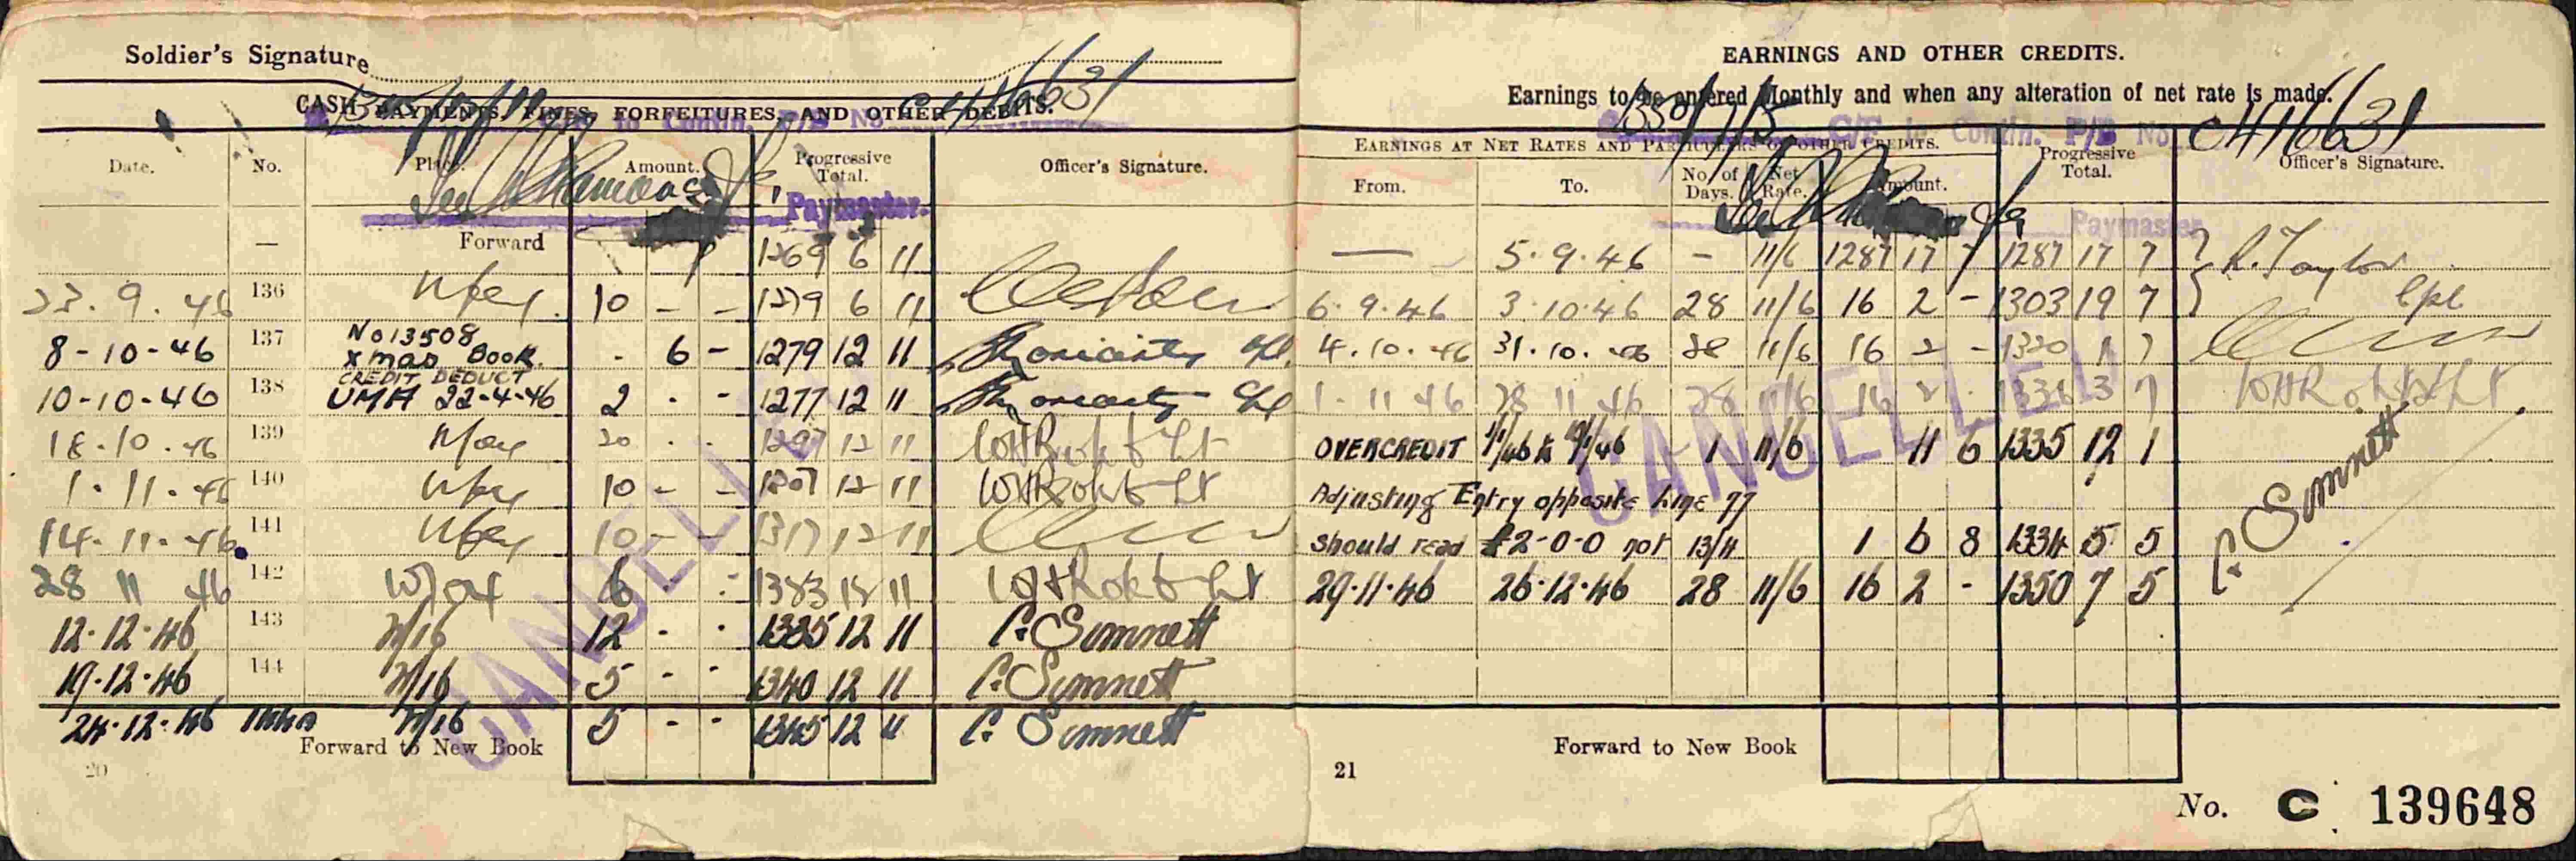 Soldier's Signature
C416631
CASH PAYMENTS, FINES, FORFEITURES, AND OTHER DEBITS.
to Contin. P/B No.
Date. No. Place. Amount. Progressive Total. Officer's Signature.
Paymaster.
— Forward 1269 6 11
23.9.46 136 10 - - 1279 6 11
8-10-46 137 No 13508 Xmas Book. - 6 - 1279 12 11 Moriarty
10-10-46 138 CREDIT DEDUCT UMA 22-4-46 2 - - 1277 12 11 Moriarty
18.10.46 139 20 - - 1297 12 11
1.11.46 140 10 - - 1307 12 11
14.11.46 141 10 - - 1317 12 11
28 11 46 142 6 - - 12 11
12.12.46 143 2/16 12 - - 1335 12 11 C. Simnett
19.12.46 144 2/16 5 - - 1340 12 11 C. Simnett
24.12.46 2/16 5 - - 1345 12 11 C. Simnett
Forward to New Book
20
CANCELLED
EARNINGS AND OTHER CREDITS.
Earnings to be entered Monthly and when any alteration of net rate is made.
C/F to Contin. P/B No C416631
EARNINGS AT NET RATES AND PARTICULARS OF OTHER CREDITS. Progressive Total. Officer's Signature.
From. To. No. of Days. Net Rate. Amount.
Paymaster
— 5.9.46 - 11/6 1287 17 7 1287 17 7 R. Taylor
6.9.46 3.10.46 28 11/6 16 2 - 1303 19 7 Cpl
4.10.46 31.10.46 28 11/6 16 2 - 1320 1 7
1.11.46 28 11 46 28 11/6 16 2 - 1336 3 7
OVERCREDIT 1 11/6 11 6 1335 12 1
Adjusting Entry opposite Line 77
should read £2-0-0 not 13/4 1 6 8 1334 5 5 C. Simnett
29.11.46 26.12.46 28 11/6 16 2 - 1350 7 5
Forward to New Book
21
CANCELLED
No. C 139648